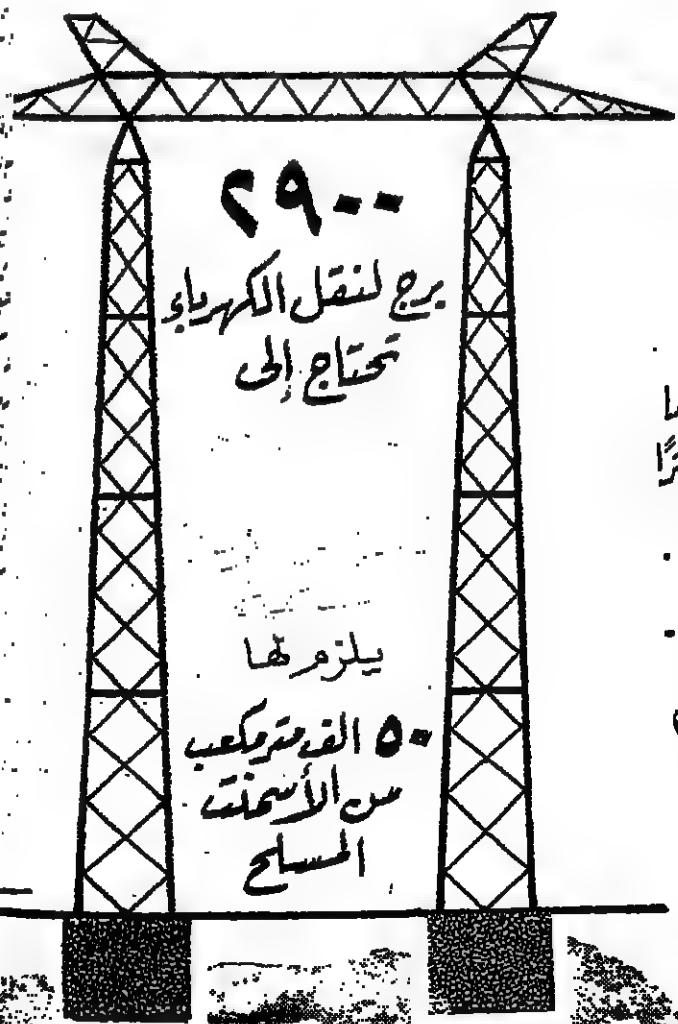 ٢٩٠٠
برج لنقل الكهرباء
تحتاج إلى
يلزم لها
٥٠ الف متر مكعب
من الأسمنت
المسلح